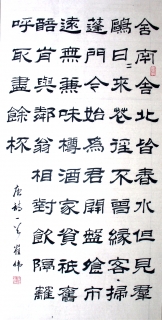 舍南舍北皆春水但見羣
鷗日來花徑不曾緣客掃
蓬門今始為君開盤飧市
遠無兼味樽酒家貧祇舊
醅肯與鄰翁相對飲隔籬
呼取盡餘杯
唐詩一首